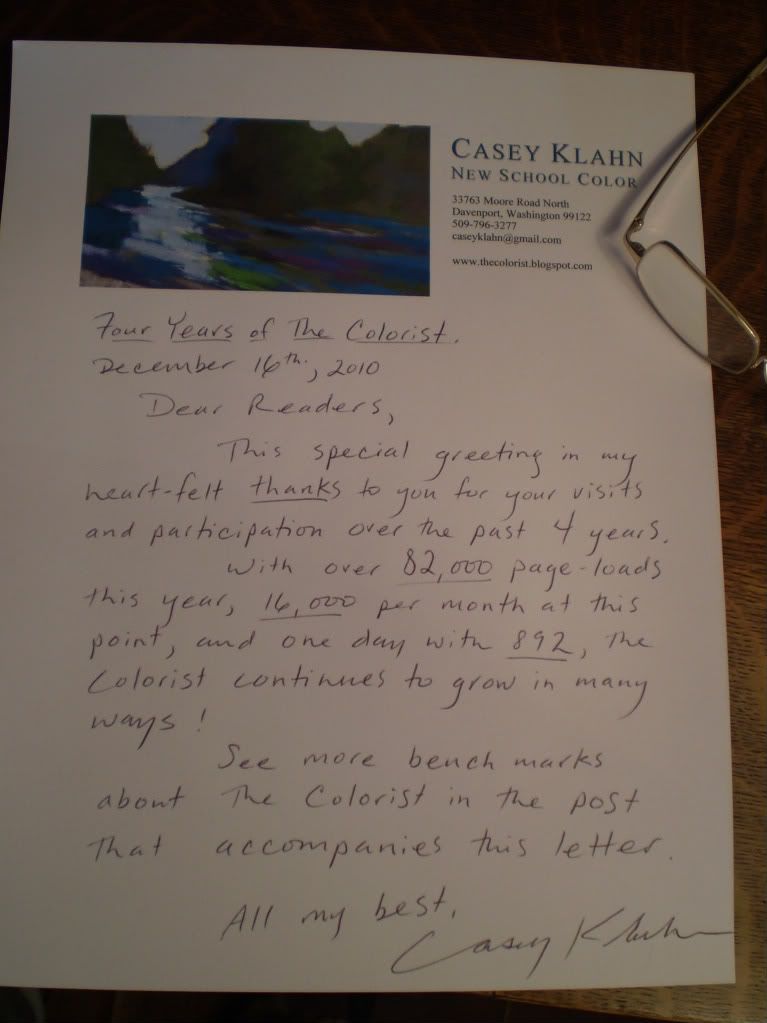 CASEY KLAHN
NEW SCHOOL COLOR
33763 Moore Road North
Davenport, Washington 99122
509-796-3277
caseyklahn@gmail.com
www.thecolorist.blogspot.com
Four Years of The Colorist.
December 16th, 2010
Dear Readers,
This special greeting in my
heart-felt thanks to you for your visits
and participation over the past 4 years.
With over 82,000 page-loads
this year, 16,000 per month at this
point, and one day with 892, The
Colorist continues to grow in many
ways!
See more bench marks
about The Colorist in the post
that accompanies this letter.
All my best,
Casey Klahn